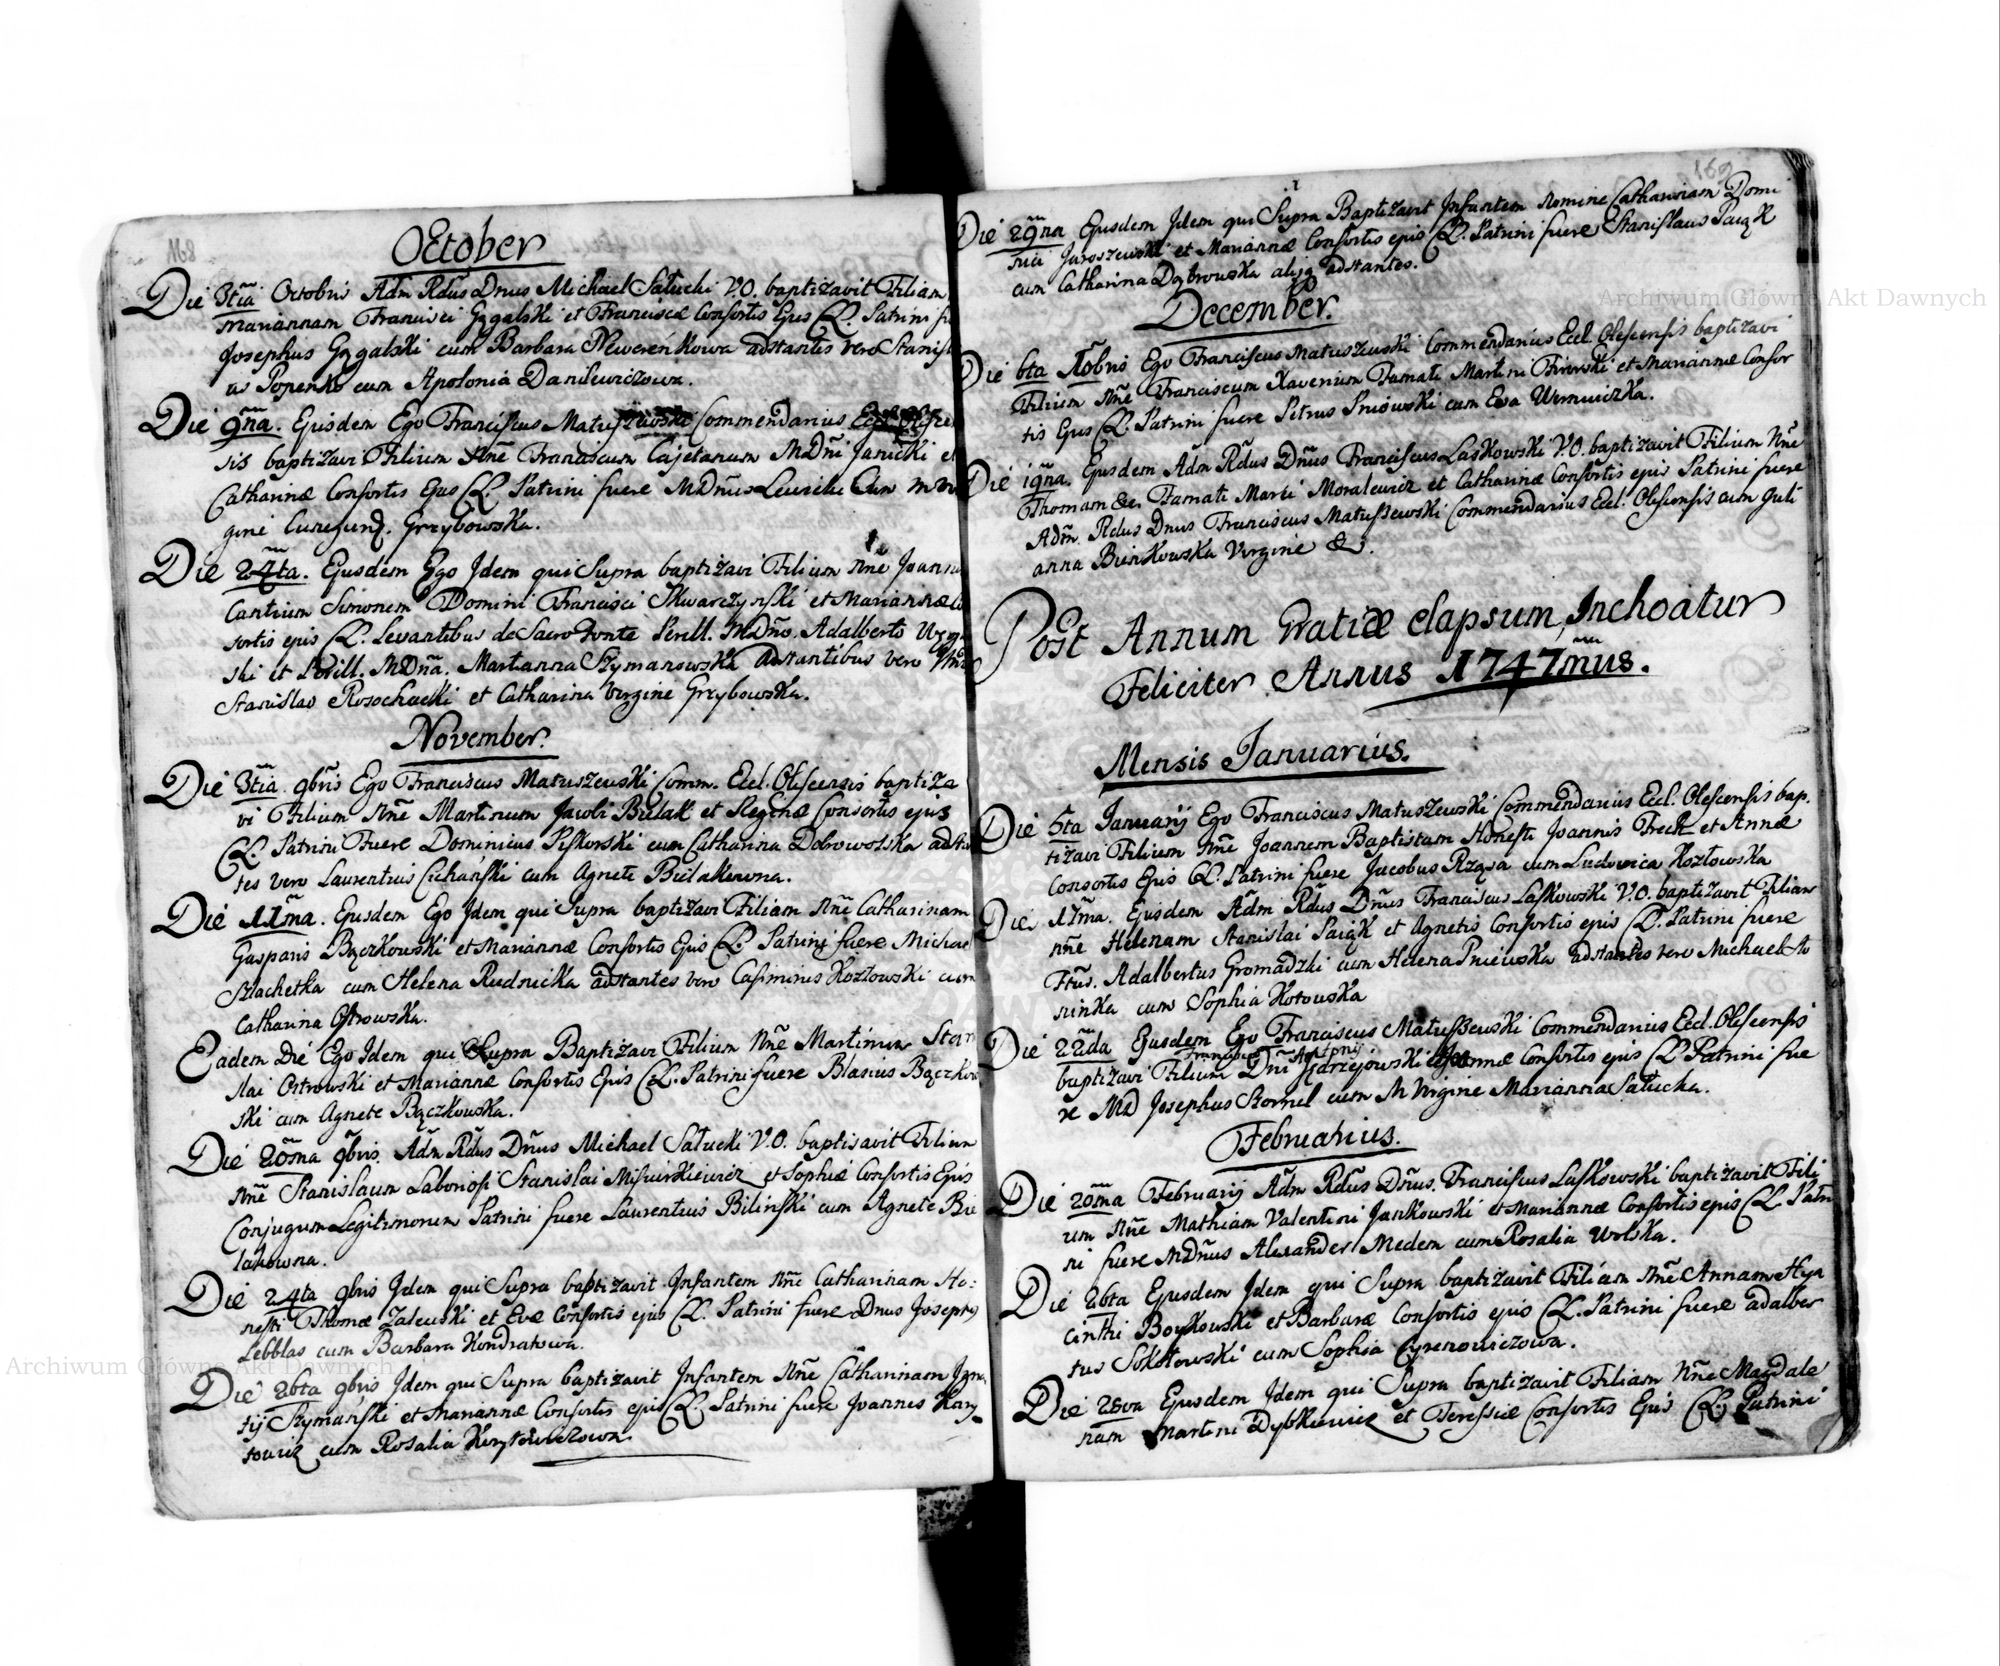 168
October
Die 3tia Octobris Adm Rdus Dnus Michael Sałucki V.O. baptizavit Filiam
Mariannam Francisci Gągalski et Franciscæ Consortis Ejus CL. Patrini fu
Josephus Gągalski cum Barbara adstantes vero Stanisl
as Popenko cum Apolonia Danilewiczowa.
Die 9na. Ejusdem Ego Franciscus Matuszewski Commendarius Eccl. Olescen
sis baptizavi Filium Nne Franciscum Cajetanum MDni Janicki et
Catharinæ Consortis Ejus CL. Patrini fuere MDnus cum
gine Cunegund. Grzybowska.
Die 24ta. Ejusdem Ego Idem qui Supra baptizavi Filium Nne Joannem
Cantium Simonem Domini Francisci Skwarczynski et Mariannæ Co
sortis ejus CL. Levantibus de Sacro Fonte Perill. MDno. Adalberto
ski et Perill. MDna. Marianna Szymanowska adstantibus vero
Stanislao Rosochacki et Catharina Virgine Grzybowska.
November.
Die 3tia. 9bris Ego Franciscus Matuszewski Comm. Eccl. Olescensis baptiza
vi Filium Nne Martinum Jacobi Bielak et Reginæ Consortis ejus
CL. Patrini Fuere Dominicus Piskorski cum Catharina Dobrowolska adsta
tes vero Laurentius Cichański cum Agnete Bielakowna.
Die 11ma. Ejusdem Ego Idem qui Supra baptizavi Filiam Nne Catharinam
Gasparis Bączkowski et Mariannæ Consortis Ejus CL. Patrinij fuere Michae
Blachetka cum Helena Rudnicka adstantes vero Casimirus Kozłowski cum
Catharina Ostrowska.
Eadem Die Ego Idem qui Supra Baptizavi Filium Nne Martinum Stan
slai Ostrowski et Mariannæ Consortis Ejus CL. Patrini fuere Blasius Bączkow
ski cum Agnete Bączkowska.
Die 20ma 9bris. Adm Rdus Dnus Michael Sałucki V.O. baptisavit Filium
Nne Stanislaum Laboriosi Stanislai Misiurkiewicz et Sophiæ Consortis Ejus
Conjugum Legitimorum Patrini fuere Laurentius Biliński cum Agnete Bie
lakowna.
Die 24ta 9bris Idem qui Supra baptizavit Infantem Nne Catharinam Ho-
nesti Thomæ Zalewski et Evæ Consortis ejus CL. Patrini fuere Dnus Josephus
Lebblas cum Barbara Kondratowa.
Die 26ta 9bris Idem qui Supra baptizavit Infantem Nne Catharinam Igna
tij Szymański et Mariannæ Consortis ejus CL. Patrini fuere Joannes Krzy
towicz cum Rosalia Krzytowiczowa.
169
Die 29na Ejusdem Idem qui Supra Baptizavit Infantem Nomine Catharinam Domi
nici Jaroszewski et Mariannæ Consortis ejus CL. Patrini fuere Stanislaus Paiąk
cum Catharina Dąbrowska alijq adstantes.
December.
Die 6ta Xbris Ego Franciscus Matuszewski Commendarius Eccl. Olescensis baptizavi
Filium Nne Franciscum Xaverium Famati Martini et Mariannæ Consor
tis Ejus CL. Patrini fuere Petrus Pniowski cum Eva Werniczka.
Die 19na. Ejusdem Adm Rdus Dnus Franciscus Laskowski V.O. baptizavit Filium Nne
Thomam &c. Famati Moralewicz et Catharinæ Consortis ejus Patrini fuere
Adm. Rdus Dnus Franciscus Matuszewski Commendarius Eccl. Olescensis cum Juli
anna Bieńkowska Virgine &c.
Post Annum Gratiæ elapsum, Inchoatur
Feliciter Annus 1747mus.
Mensis Januarius.
Die 5ta Januarij Ego Franciscus Matuszewski Commendarius Eccl. Olescensis bap.
tizavi Filium Nne Joannem Baptistam Honesti Joannis Freck et Annæ
Consortis Ejus CL. Patrini fuere Jacobus Rząsa cum Ludovica Kozłowska
Die 17ma. Ejusdem Adm Rdus Dnus Franciscus Laskowski V.O. baptizavit Filiam
Nne Helenam Stanislai Paiąk et Agnetis Consortis ejus CL. Patrini fuere
Adalbertus Gromadzki cum Helena Pniewska adstantes vero Michael
ninka cum Sophia Kotowska
Die 22da Ejusdem Ego Franciscus Matuszewski Commendarius Eccl. Olescensis
Franciscum Antonij
baptizavi Filium Dni Jędrzejowski et Annæ Consortis ejus CL Patrini fue
re MD Josephus Kornel cum M Virgine Marianna Sałucka.
Februarius.
Die 20ma Februarij Adm Rdus Dnus. Franciscus Laskowski baptizavit Fili
um Nne Mathiam Valentini Jankowski et Mariannæ Consortis ejus CL. Patri
ni fuere MDnus Alexander Medem cum Rosalia Wolska.
Die 26ta Ejusdem Idem qui Supra baptizavit Filiam Nne Annam Hya
cinthi Boykowski et Barbaræ Consortis ejus CL. Patrini fuere Adalber
tus Sokołowski cum Sophia Cyrenowiczowa.
Die 28va Ejusdem Idem qui Supra baptizavit Filiam Nne Magdale
nam Martini Dybkiewicz et Teressiæ Consortis Ejus CL. Patrini
Archiwum Główne Akt Dawnych
Archiwum Główne Akt Dawnych